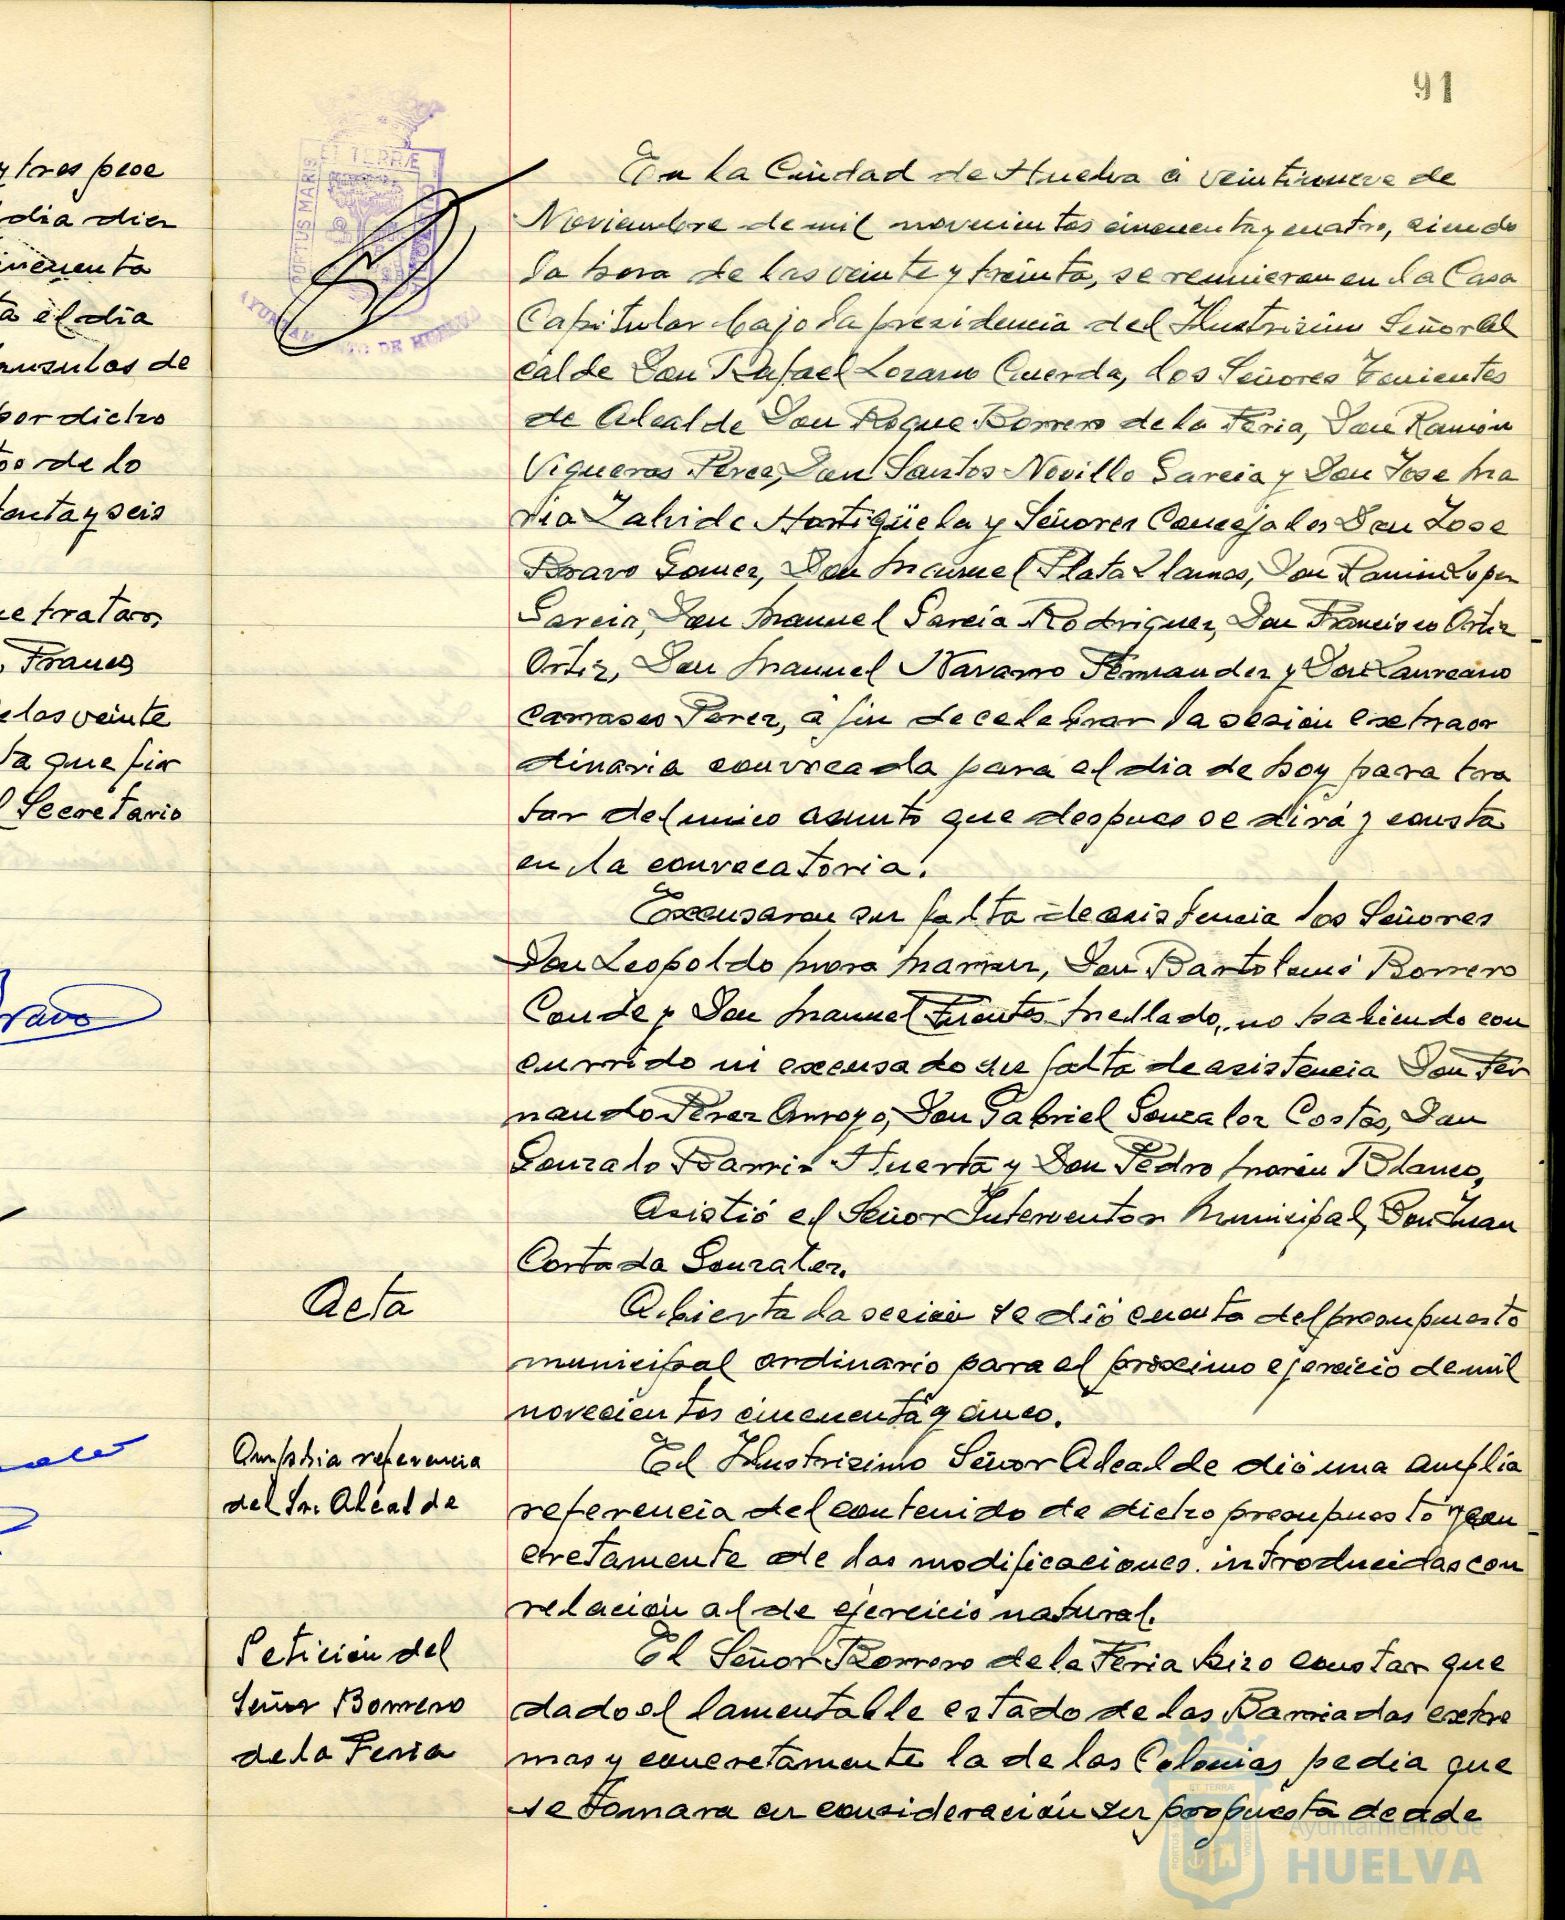 91
y tres pese
dia diez
cincuenta
el día
de
por dicho
de lo
y seis
tratar,
Franco
las veinte
que fir
Secretario
Bravo
ET TERRÆ
PORTUS MARIS
AYUNTAMIENTO DE HUELVA
En la Ciudad de Huelva á veintinueve de
Noviembre de mil novecientos cincuenta y cuatro, siendo
la hora de las veinte y treinta, se reunieron en la Casa
Capitular bajo la presidencia del Ilustrisimo Señor Al
calde Don Rafael Lozano Cuerda, los Señores Tenientes
de Alcalde Don Roque Borrero de la Feria, Don Ramón
Vigueras Perez, Don Santos Novillo Garcia y Don Jose Ma
ria Zalvide Hortigüela y Señores Concejales Don Jose
Bravo Gomez, Don Manuel Plata Llamas, Don Ramiro Lopez
Garcia, Don Manuel García Rodriguez, Don Francisco Ortiz
Ortiz, Don Manuel Navarro Fernandez y Don Laureano
Carrasco Perez, á fin de celebrar la sesión extraor
dinaria convocada para el dia de hoy para tra
tar del unico asunto que despues se dirá y consta
en la convocatoria.
Excusaron su falta de asistencia los Señores
Don Leopoldo Mora Don Bartolomé Borrero
Conde y Don Manuel Fuentes Mellado, no habiendo con
currido ni excusado su falta de asistencia Don Fer
nando Perez Arroyo, Don Gabriel Gonzalez Costas, Don
Gonzalo Barris Huerta y Don Pedro Morón Blanco,
Asistió el Señor Interventor Municipal, Don Juan
Cortada Gonzalez.
Acta
Abierta la sesión se dió cuenta del presupuesto
municipal ordinario para el próximo ejercicio de mil
novecientos cincuenta y cinco.
Amplia referencia
del Sr. Alcalde
El Ilustrisimo Señor Alcalde dió una amplia
referencia del contenido de dicho presupuesto y con
cretamente de las modificaciones introducidas con
relación al de ejercicio natural.
Petición del
Señor Borrero
de la Feria
El Señor Borrero de la Feria hizo constar que
dado el lamentable estado de las Barriadas extre
mas y concretamente la de las Colonias pedia que
se tomara en consideración su propuesta desde
Ayuntamiento de
HUELVA